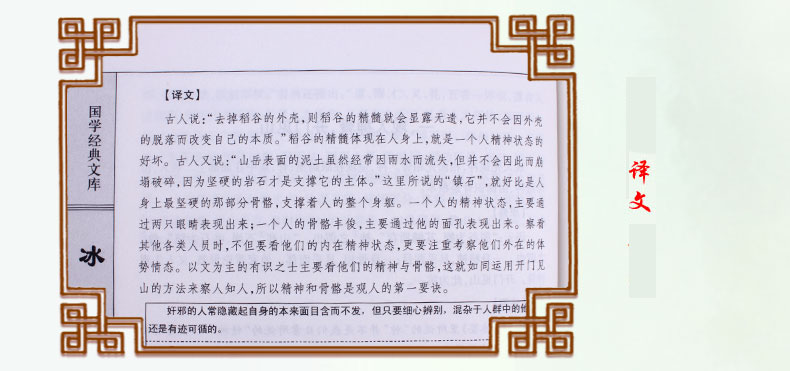 【译文】
古人说：“去掉稻谷的外壳，则稻谷的精髓就会显露无遗，它并不会因外壳
的脱落而改变自己的本质。”稻谷的精髓体现在人身上，就是一个人精神状态的
好坏。古人又说：“山岳表面的泥土虽然经常因雨水而流失，但并不会因此而崩
塌破碎，因为坚硬的岩石才是支撑它的主体。”这里所说的“镇石”，就好比是人
身上最坚硬的那部分骨骼，支撑着人的整个身躯。一个人的精神状态，主要通
过两只眼睛表现出来；一个人的骨骼丰俊，主要通过他的面孔表现出来。察看
其他各类人员时，不但要看他们的内在精神状态，更要注重考察他们外在的体
势情态。以文为主的有识之士主要看他们的精神与骨骼，这就如同运用开门见
山的方法来察人知人，所以精神和骨骼是观人的第一要诀。
奸邪的人常隐藏起自身的本来面目含而不发，但只要细心辨别，混杂于人群中的他
还是有迹可循的。
国学经典文库
冰
译文